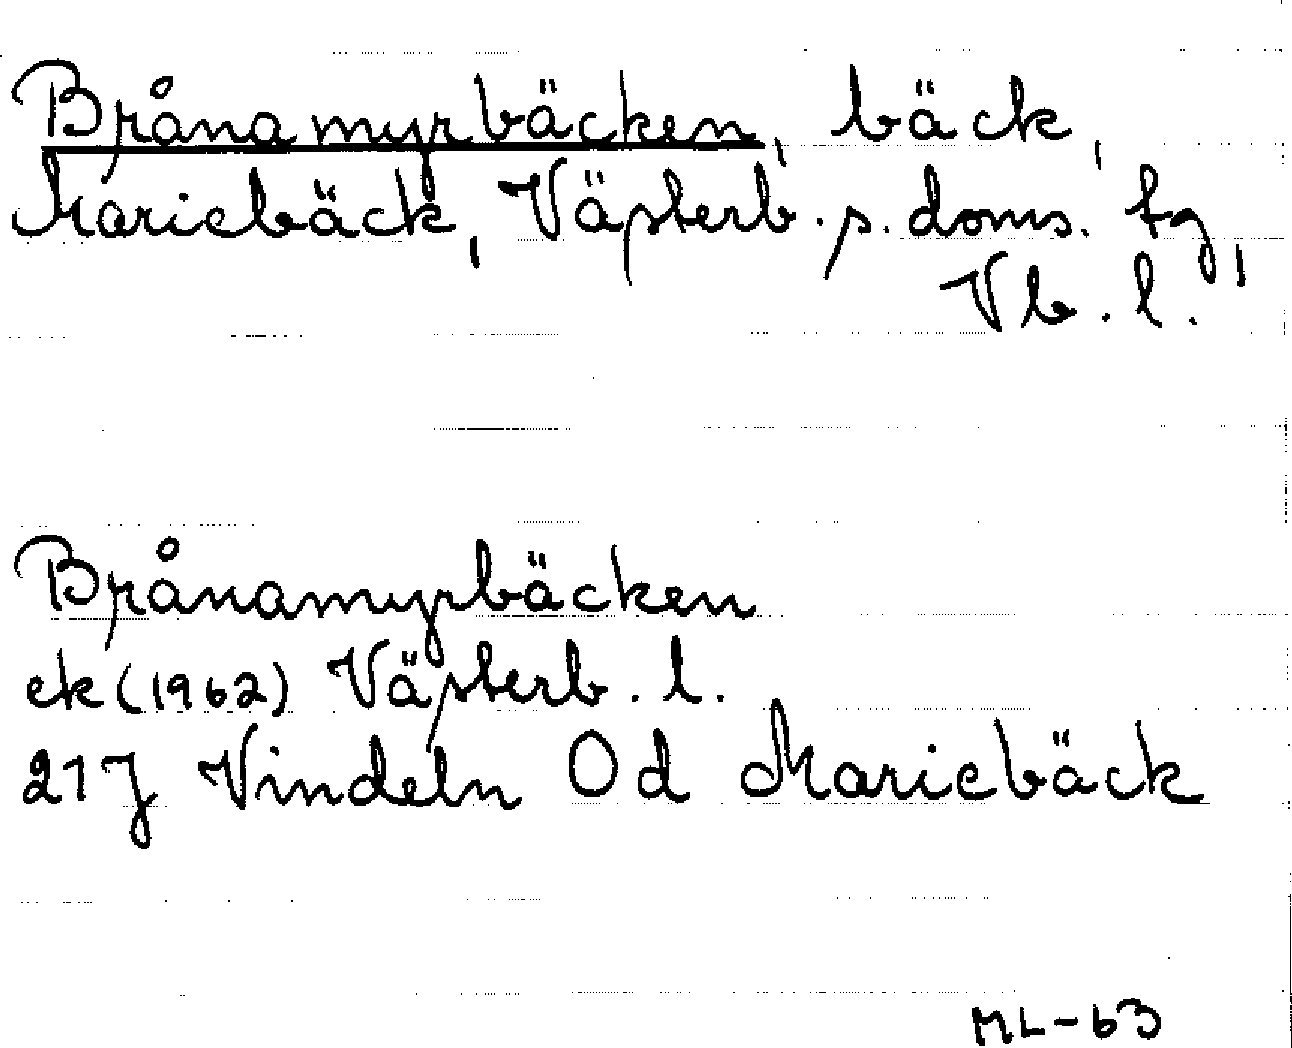 Brånamyrbäcken, bäck,
Mariebäck, Västerb. s. doms. tg,
Vb. l.
Brånamyrbäcken
ek (1962) Västerb. l.
21J Vindeln Od Mariebäck
ML-63